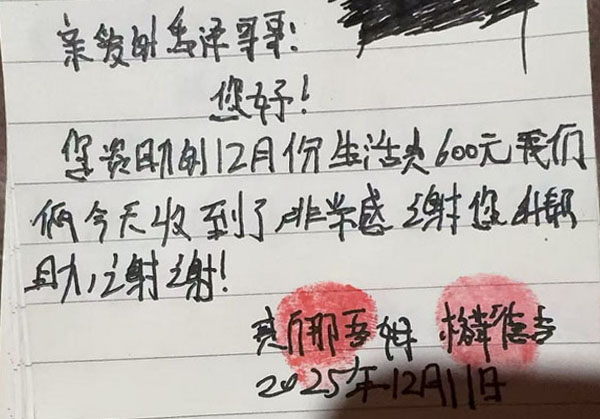 亲爱的禹泽哥哥:
您好!
您资助的12月份生活费600元我们
俩今天收到了非常感谢您的帮
助,谢谢!
那吾姆
2025年12月11日